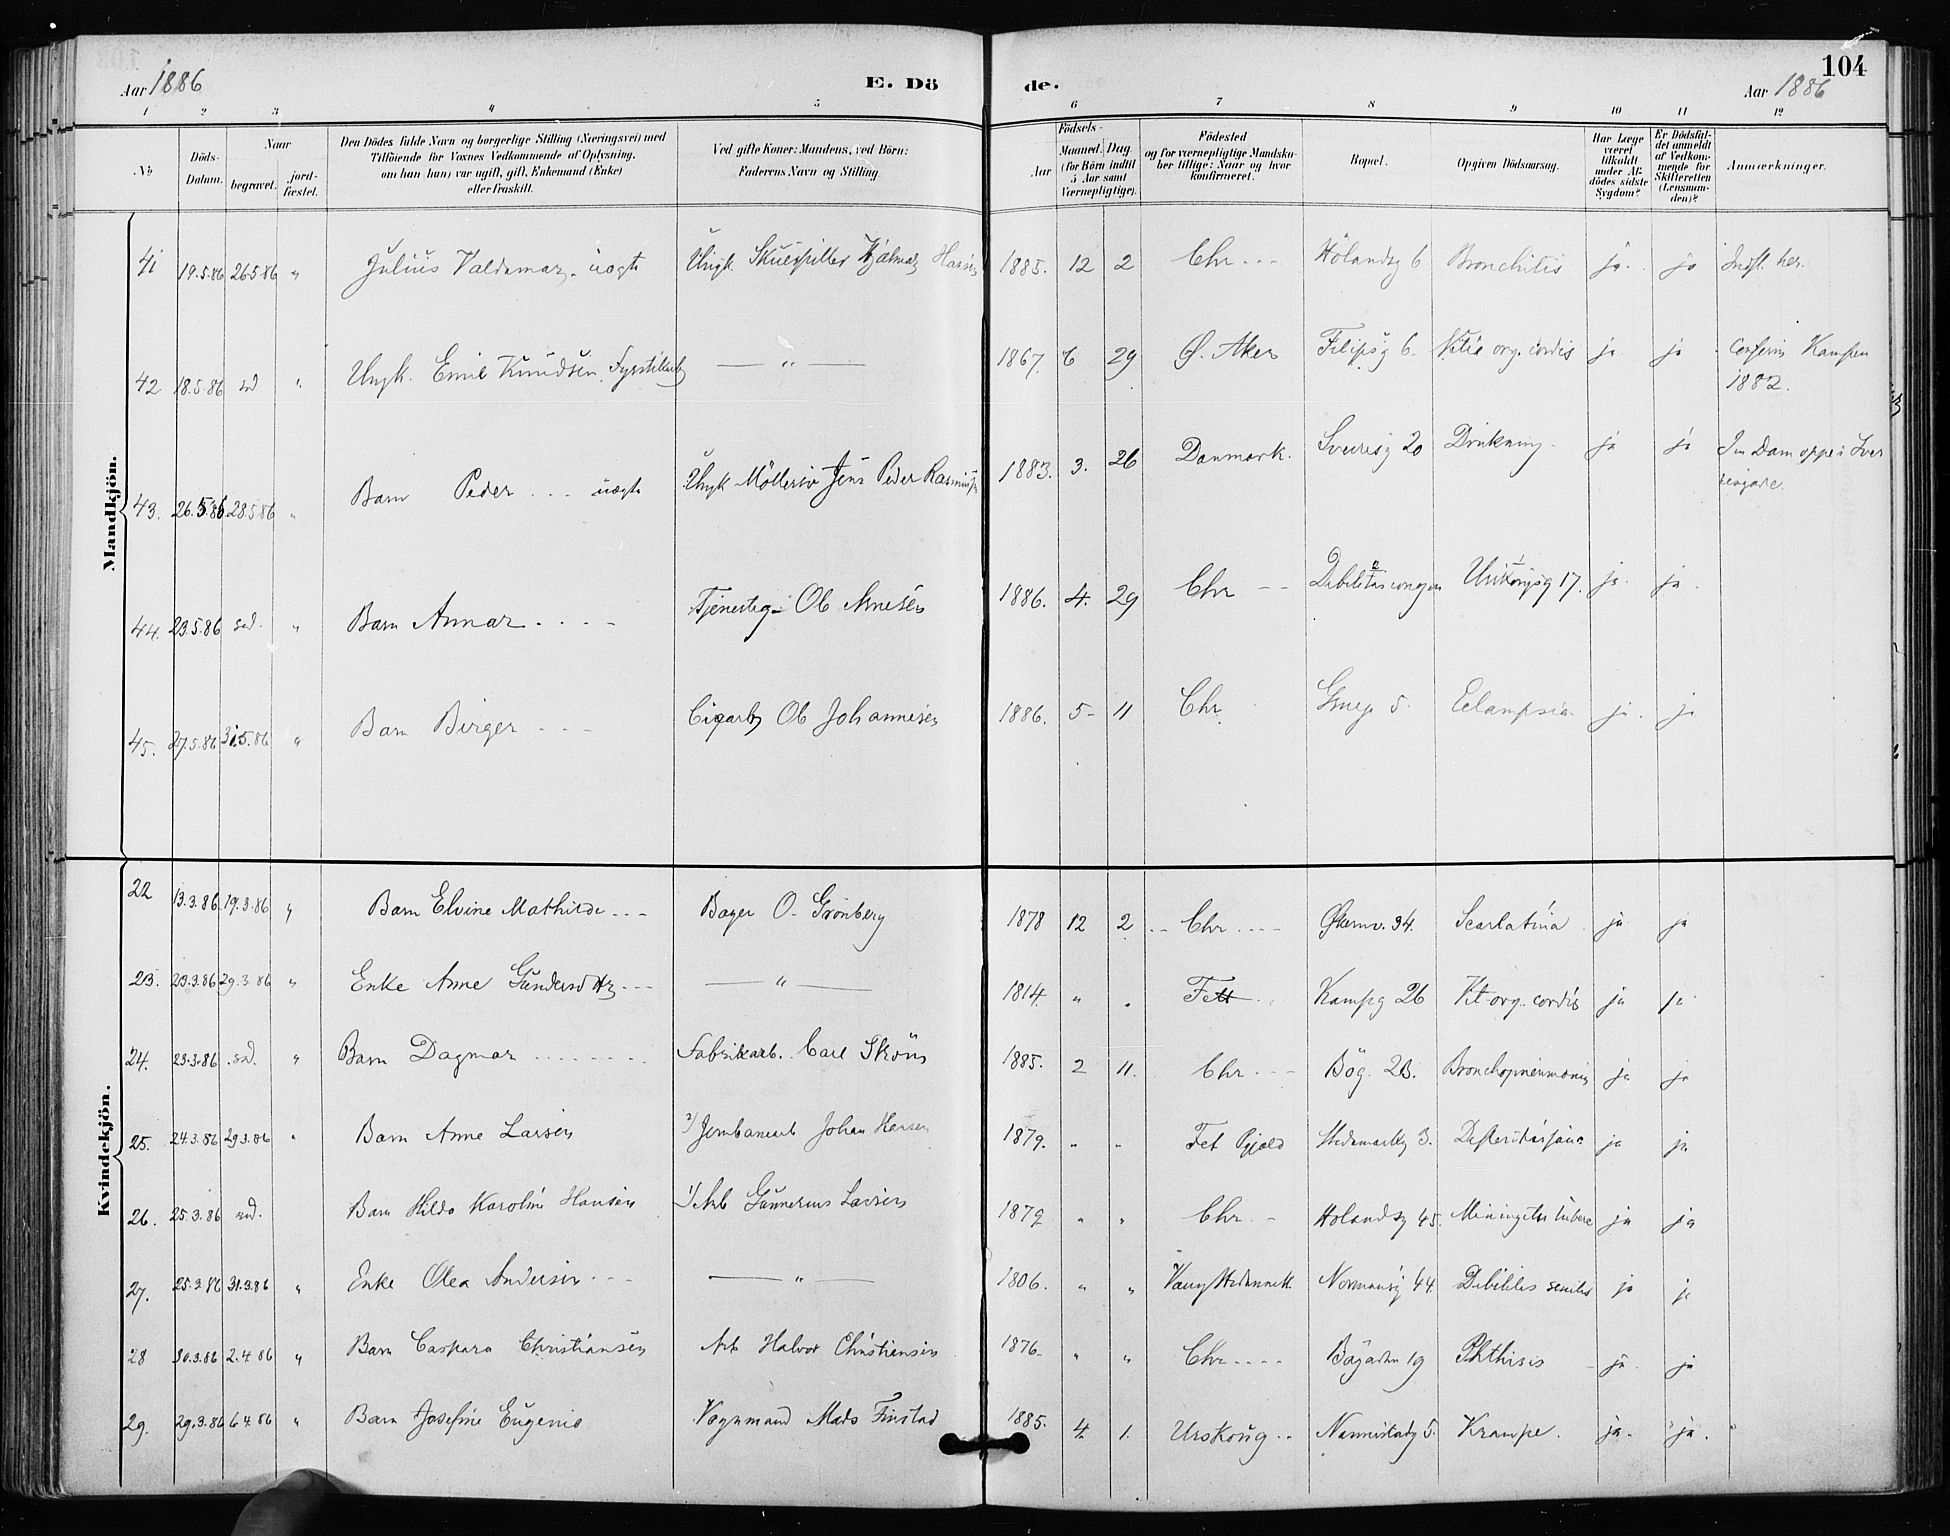 Aar 1886
E. Dö
de.
Aar 1886
104
1 2 3 4 5 6 7 8 9 10 11 12
No
Döds-Datum.
Naar
begravet.
jord-fæstet.
Den Dödes fulde Navn og borgerlige Stilling (Næringsvei) med
Tilföiende for Voxnes Vedkommende af Oplysning,
om han (hun) var ugift, gift, Enkemand (Enke)
eller fraskilt.
Ved gifte Koner: Mandens, ved Börn:
Faderens Navn og Stilling.
Födsels-
Aar
Maaned. Dag
(for Börn indtil
5 Aar samt
Værnepligtige).
Födested
og for værnepligtige Mandskaber tillige: Naar og hvor
konfirmeret.
Bopæl.
Opgiven Dödsaarsag.
Har Læge
været
tilkaldt
under Afdödes sidste
Sygdom?
Er Dödsfaldet anmeldt
af Vedkommende for
Skifteretten
(Lensmanden)?
Anmærkninger.
Mandkjön.
41 19.5.86 26.5.86 " Julius Valdemar, uægte Ungk. Skuespiller Hjalmar Hansen 1885. 12 2 Chr Hölandsg 6 Bronchitis ja ja Indfl. her.
42 18.5.86 sd " Ungk. Emil Knudsen, — " — 1867. 6 29 Ø. Aker Filipsg 6. Vitia org. cordis ja ja confirm Kampen
1882.
43. 26.5.86 28.5.86 " Barn Peder uægte Ungk Möllersv Jens Peder Rasmus 1883. 3. 26 Danmark. Sverresg 20 Drukning ja ja I en Dam oppe i
44. 23.5.86 sd. " Barn Annar Ole 1886. 4. 29 Chr Debilitas congen 17. ja ja
45. 27.5.86 31.5.86 " Barn Birger Cigarb Ole Johannesen 1886. 5 11 Chr 5. Eclampsia ja ja
Kvindekjön.
22 13.3.86 19.3.86 " Barn Elvine Mathilde Bager O. Grönberg 1878 12 2 Chr Økernv. 34. Scarlatina ja ja
23. 23.3.86 29.3.86 " Enke Anne Gundersdtr — " — 1814. " " Fett Kampg 26 Vit org. cordis ja ja
24. 23.3.86 sd. " Barn Dagmar Fabrikarb. Carl 1885. 2 11. Chr Bög. 2B. Bronchopneumonia ja ja
25. 24.3.86 29.3.86 " Barn Anne Larsen 2/ Jernbanearb Johan Hansen 1879. " " Fet Pgjæld Hedemarkg 3. ja ja
26. 25.3.86 sd. Barn Hilda Karoline Hansen 1/ Arb Gunnerius Larsen 1879 " " Chr. Hölandsg 45. ja ja
27. 25.3.86 31.3.86 " Enke Olea Andersen — " — 1806. " " Vang Hedemark. Normansg 44. Debilitas senilis ja ja
28 30.3.86 2.4.86 " Barn Caspara Christiansen Arb Halvor Christiansen 1876. " " Chr Bögaden 19 Phthisis ja ja
29. 29.3.86 6.4.86 " Barn Josefine Eugenie Vognmand Mads Finstad 1885. 4. 1. Urskoug Nannestadg 5. Krampe. ja ja.